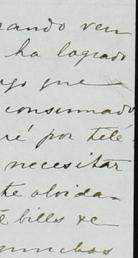 ando ven
ha logrado
que
consumado
ré por tele
necesitar
te olvida
bills &c
muchos